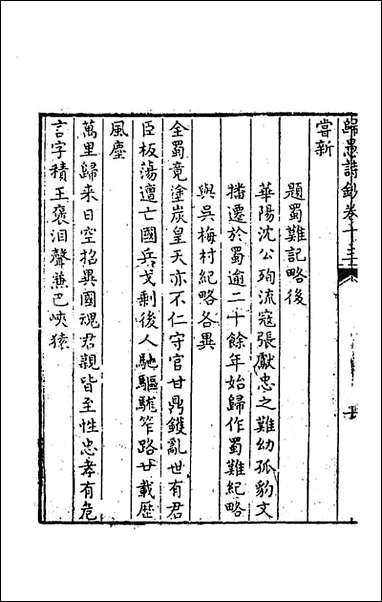 歸愚詩鈔卷十三
嘗新
題蜀難記略後
華陽沈公殉流寇張獻忠之難幼孤豹文
播遷於蜀逾二十餘年始歸作蜀難紀略
與吳梅村紀略各異
全蜀竟塗炭皇天亦不仁守官甘鼎鑊亂世有君
臣板蕩遭亡國兵戈剩後人馳驅騅笮路廿載歷
風塵
萬里歸来日空招異國魂君親皆至性忠孝有危
言字積王褒泪聲兼巴峽猿